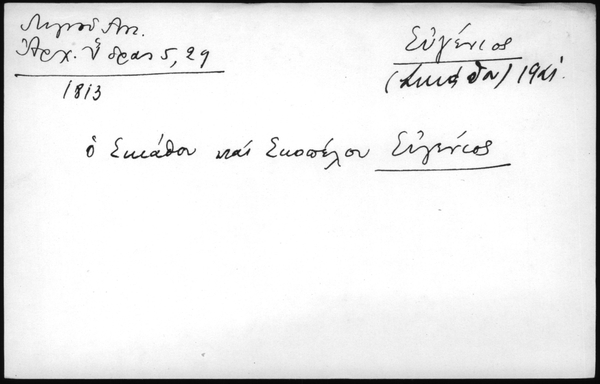 Λιγνού Αντ.
Ἀρχ. Ὕδρας 5, 29
1813
Εὐγένιος
(Σκιάθου) 1921.
ὁ Σκιάθου καί Σκοπέλου Εὐγένιος